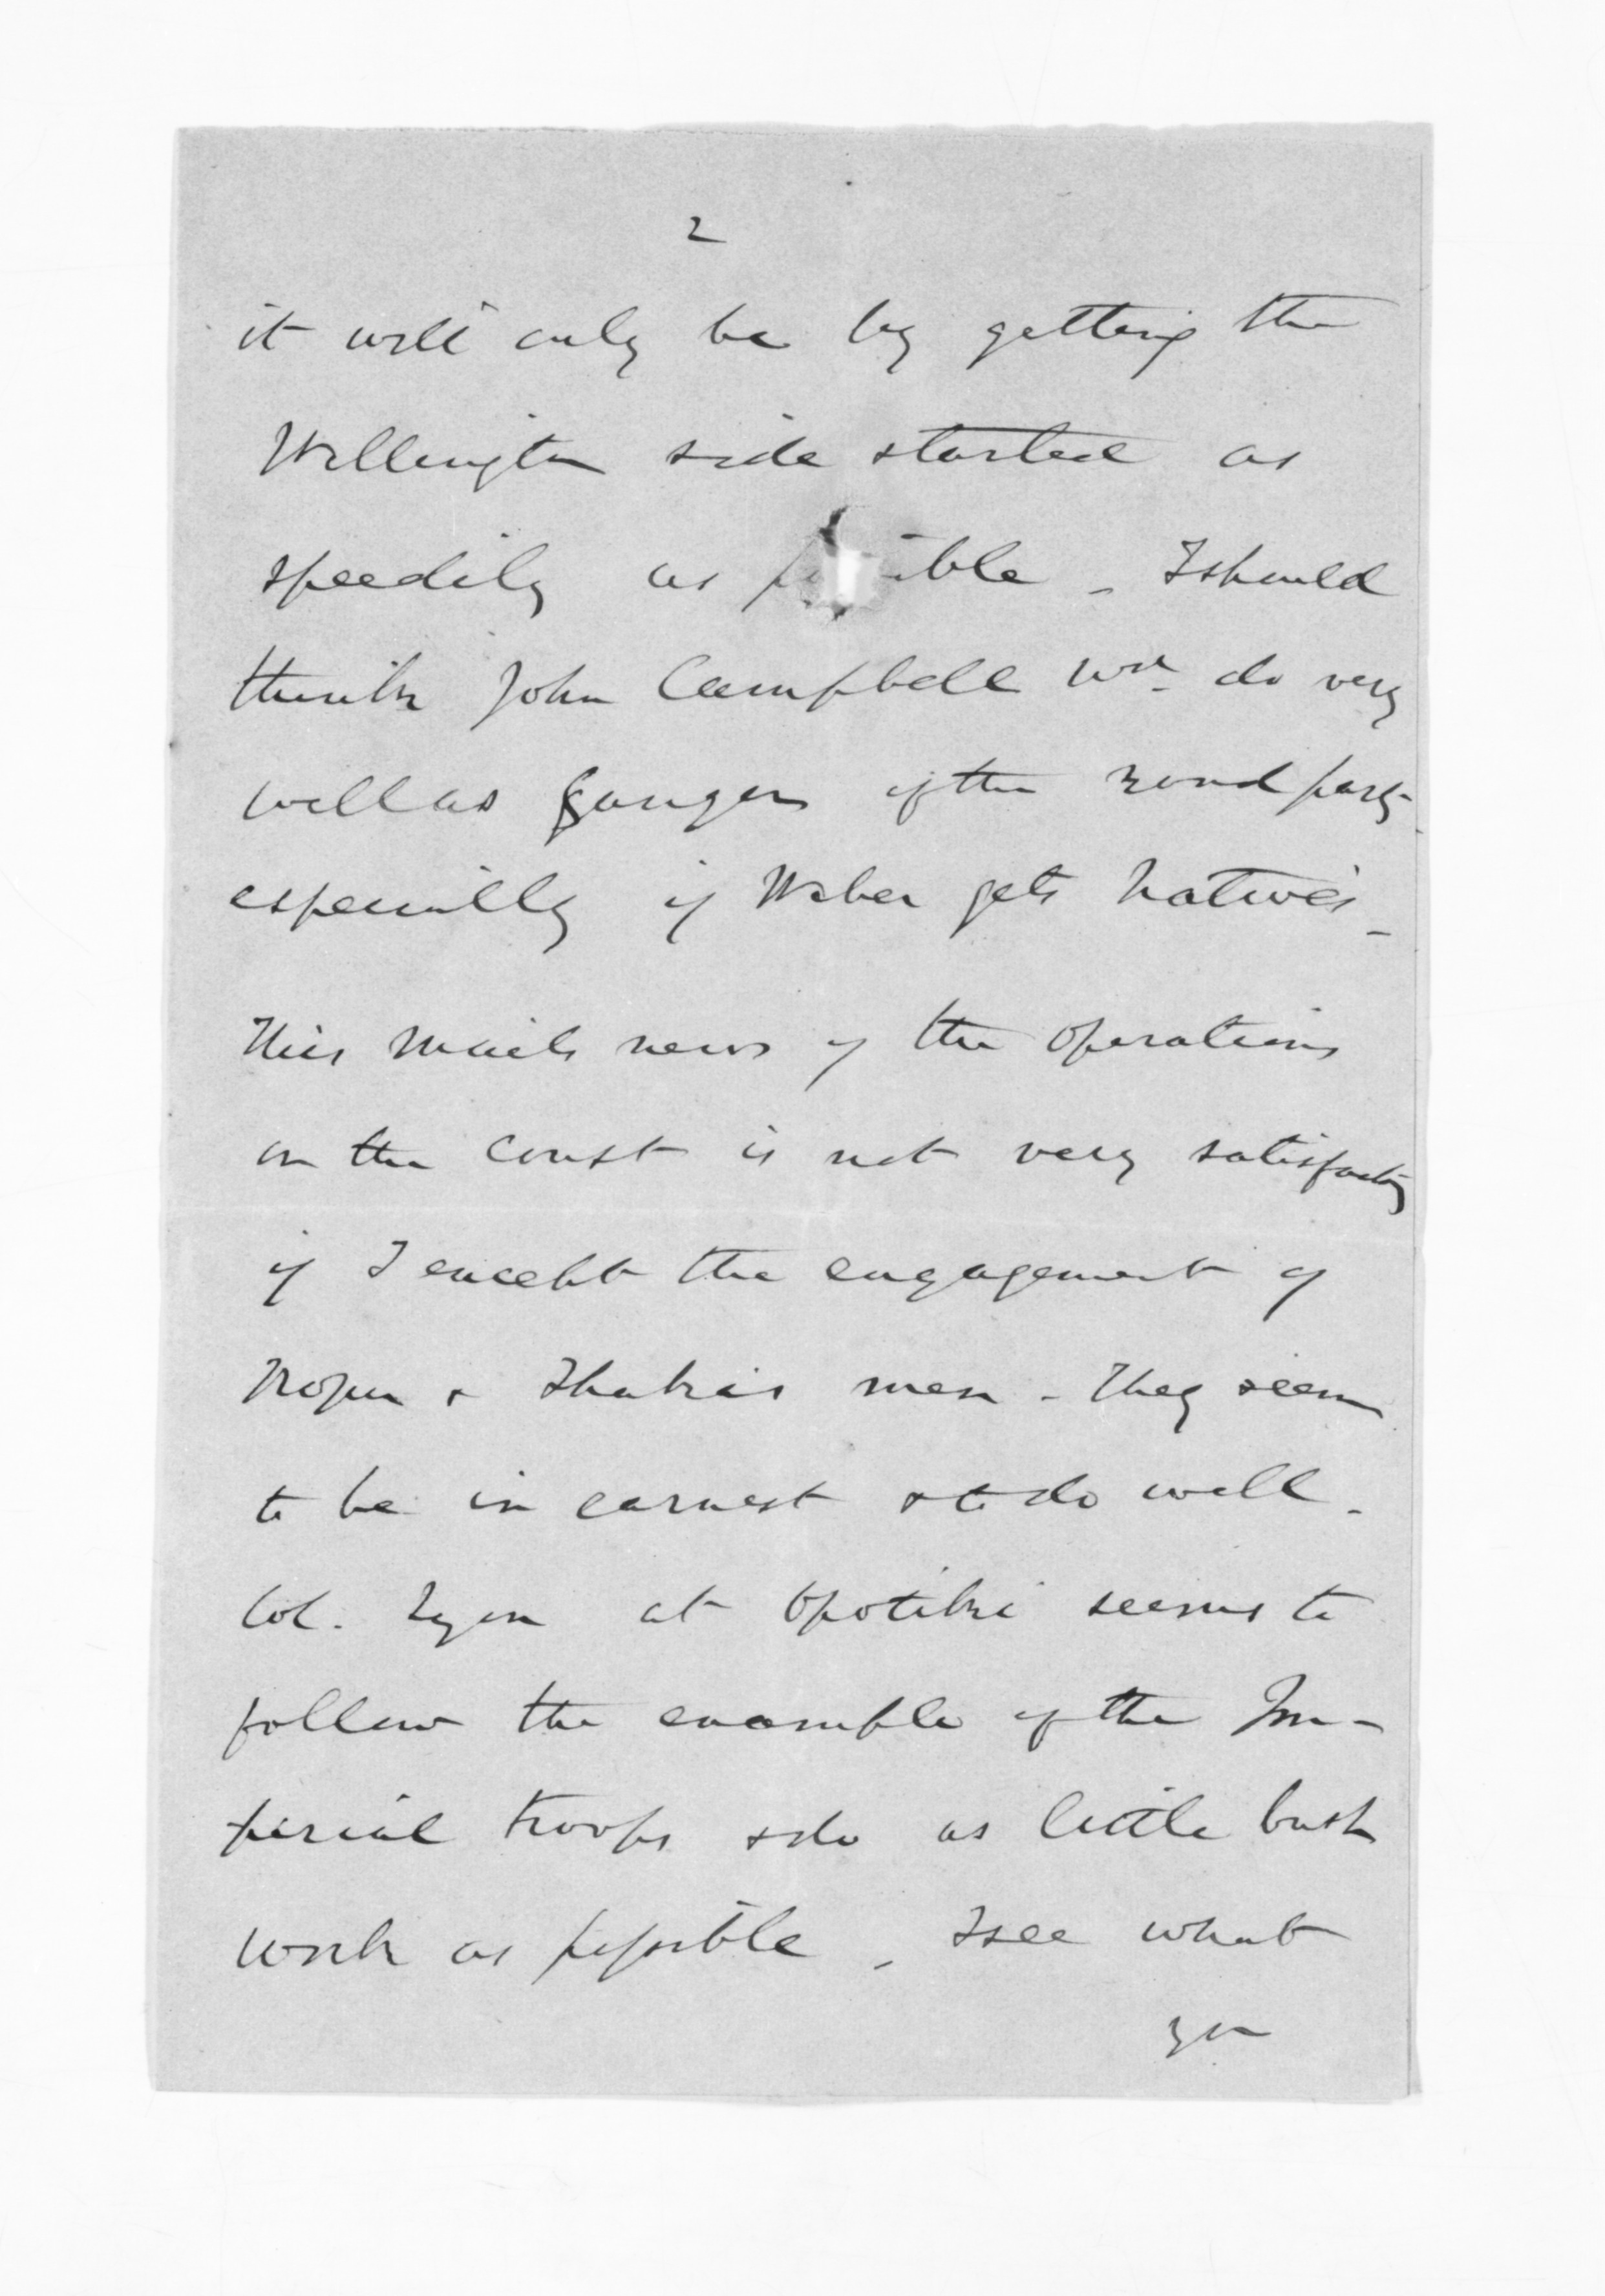 2
it will only be by getting the
Wellington side started as
speedily as possible - I should
think John Campbell wd. do very
well as ganger of the road party
especially if Weber gets Natives -
This mails news of the operations
on the coast is not very satisfactory
if I except the engagement of
Ropu & Ihaka's men - They seem
to be in earnest & to do well -
Col. Lyon at Opotiki seems to
follow the example of the Im-
perial troops & do as little bush
work as possible - I see what
you